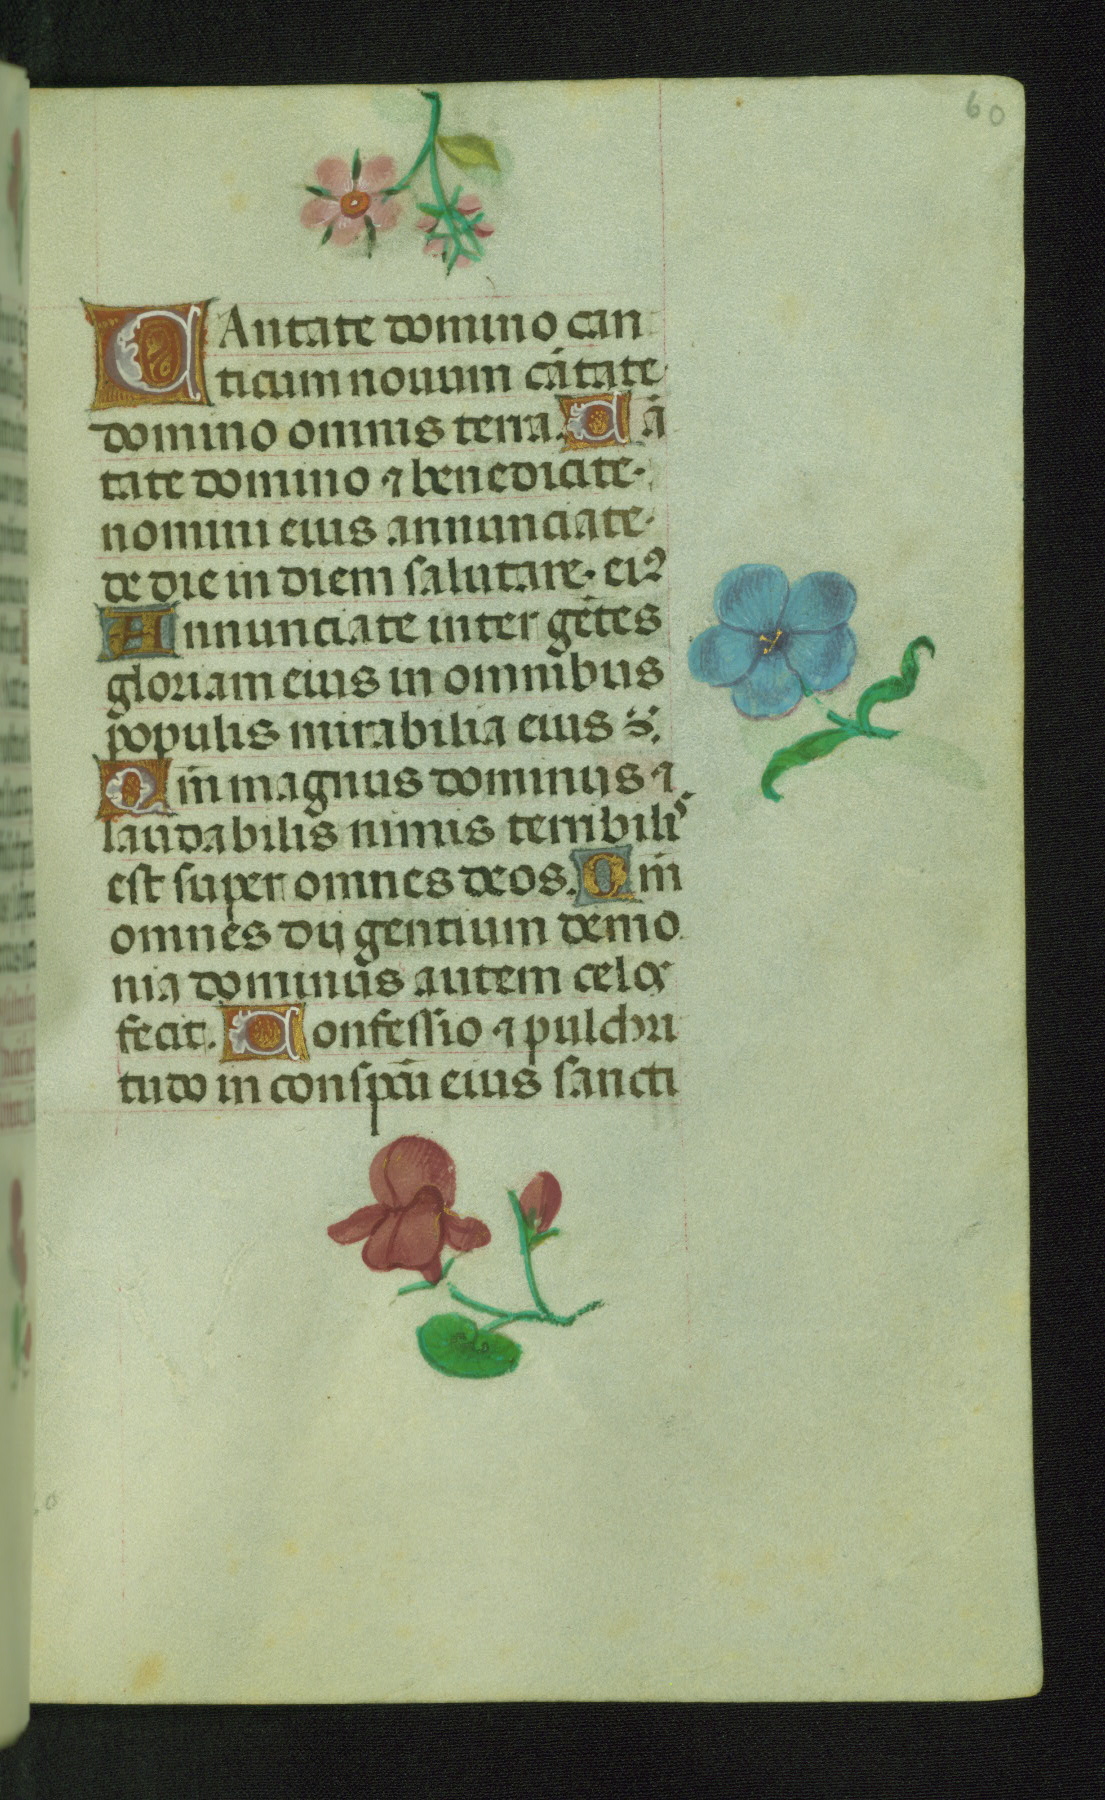 60
CAntate domino can
ticum nouum cātate
domino omnis terra. Cā
tate domino ⁊ benedicate
nomini eius annunciate
de die in diem salutare eiꝰ
Annunciate inter gētes
gloriam eius in omnibus
populis mirabilia eius
Qm̄ magnus dominus ⁊
laudabilis nimis terribilis
est super omnes deos. Qm̄
omnes dij gentium demo
nia dominus autem celoꝝ
fecit. Confessio ⁊ pulchri
tudo in conspcū eius sancti